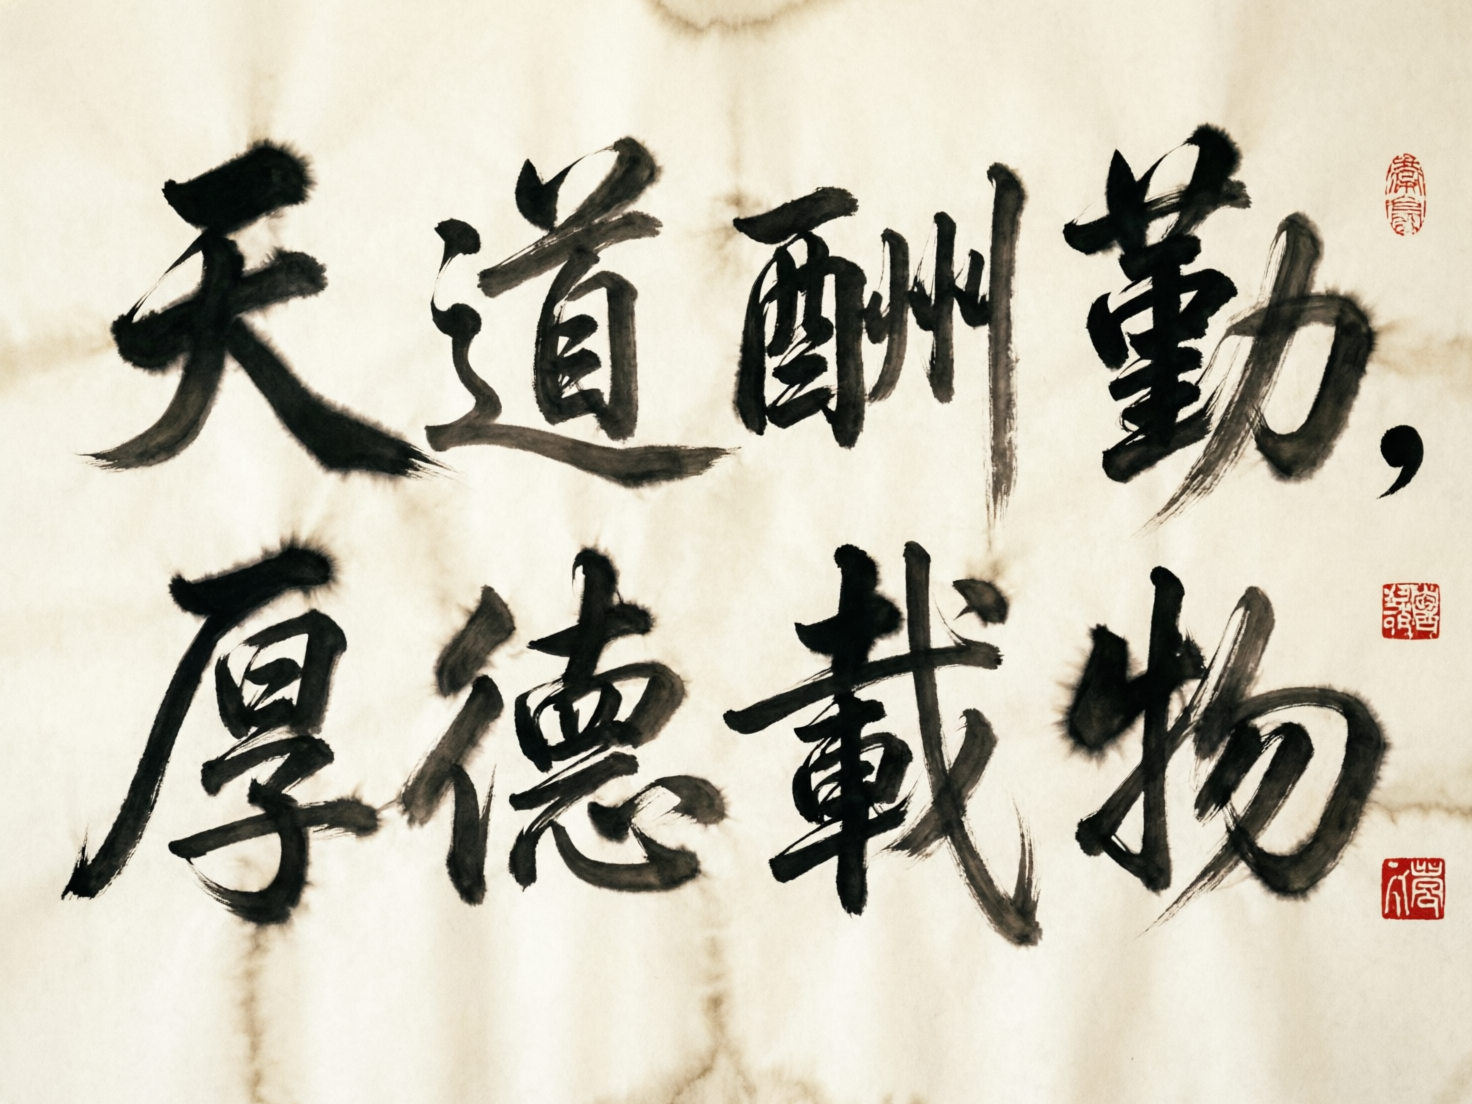 天道酬勤，
厚德載物